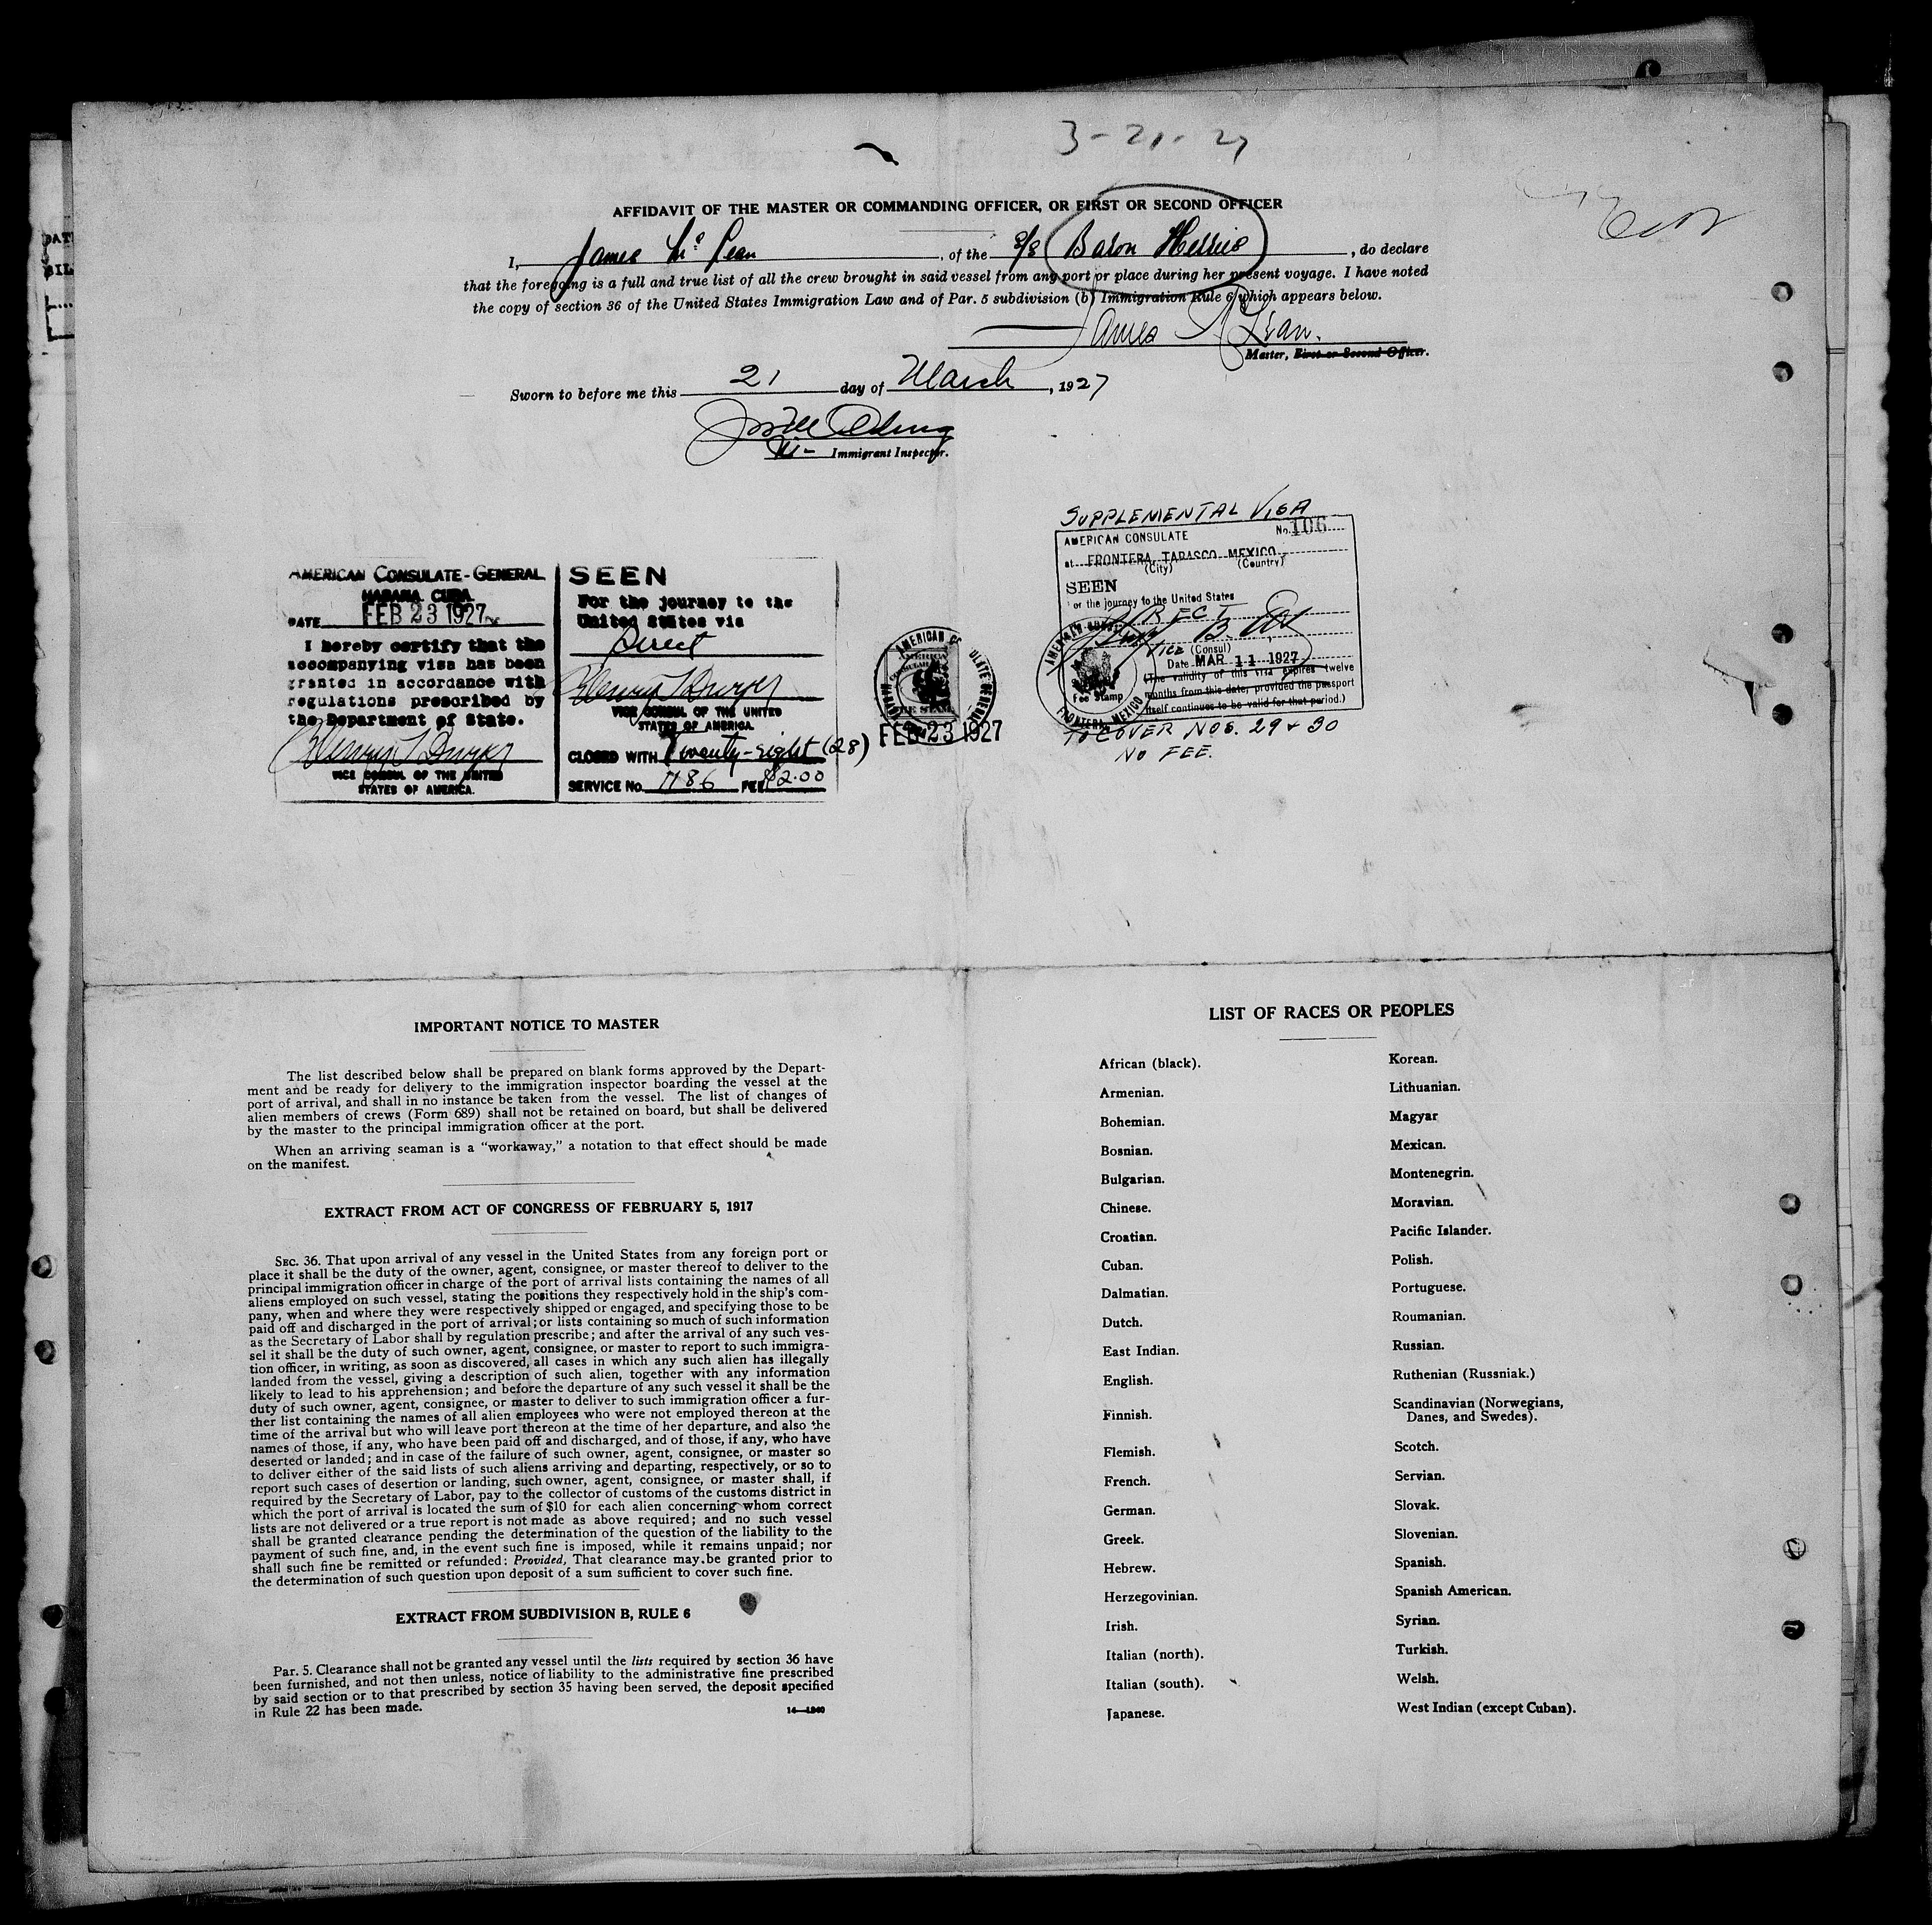 3-21-27
AFFIDAVIT OF THE MASTER OR COMMANDING OFFICER, OR FIRST OR SECOND OFFICER
I, James McLean, of the s/s Baron Herries, do declare
that the foregoing is a full and true list of all the crew brought in said vessel from any port or place during her present voyage. I have noted
the copy of section 36 of the United States Immigration Law and of Par. 5 subdivision (b) Immigration Rule 6, which appears below.
James McLean.
Master, First or Second Officer.
Sworn to before me this 21 day of March, 1927
Immigrant Inspector.
AMERICAN CONSULATE-GENERAL
HABANA CUBA
DATE FEB 23 1927
I hereby certify that the
accompanying visa has been
granted in accordance with
regulations prescribed by
the Department of State.
VICE CONSUL OF THE UNITED
STATES OF AMERICA.
SEEN
For the journey to the
United States via
Direct
VICE CONSUL OF THE UNITED
STATES OF AMERICA.
CLOSED WITH Twenty-eight (28)
SERVICE No. 1186 FEE $2.00
AMERICAN CONSULATE GENERAL
FEB 23 1927
SUPPLEMENTAL VISA
No. 106
AMERICAN CONSULATE
at FRONTERA, TABASCO, MEXICO
(City) (Country)
SEEN
For the journey to the United States
DIRECT
Vice (Consul)
Date MAR 11 1927
(The validity of this visa expires twelve
months from this date, provided the passport
itself continues to be valid for that period.)
Fee Stamp
FRONTERA, MEXICO
TO COVER NOS. 29 & 30
NO FEE.
IMPORTANT NOTICE TO MASTER
The list described below shall be prepared on blank forms approved by the Depart-
ment and be ready for delivery to the immigration inspector boarding the vessel at the
port of arrival, and shall in no instance be taken from the vessel. The list of changes of
alien members of crews (Form 689) shall not be retained on board, but shall be delivered
by the master to the principal immigration officer at the port.
When an arriving seaman is a "workaway," a notation to that effect should be made
on the manifest.
EXTRACT FROM ACT OF CONGRESS OF FEBRUARY 5, 1917
SEC. 36. That upon arrival of any vessel in the United States from any foreign port or
place it shall be the duty of the owner, agent, consignee, or master thereof to deliver to the
principal immigration officer in charge of the port of arrival lists containing the names of all
aliens employed on such vessel, stating the positions they respectively hold in the ship's com-
pany, when and where they were respectively shipped or engaged, and specifying those to be
paid off and discharged in the port of arrival; or lists containing so much of such information
as the Secretary of Labor shall by regulation prescribe; and after the arrival of any such ves-
sel it shall be the duty of such owner, agent, consignee, or master to report to such immigra-
tion officer, in writing, as soon as discovered, all cases in which any such alien has illegally
landed from the vessel, giving a description of such alien, together with any information
likely to lead to his apprehension; and before the departure of any such vessel it shall be the
duty of such owner, agent, consignee, or master to deliver to such immigration officer a fur-
ther list containing the names of all alien employees who were not employed thereon at the
time of the arrival but who will leave port thereon at the time of her departure, and also the
names of those, if any, who have been paid off and discharged, and of those, if any, who have
deserted or landed; and in case of the failure of such owner, agent, consignee, or master so
to deliver either of the said lists of such aliens arriving and departing, respectively, or so to
report such cases of desertion or landing, such owner, agent, consignee, or master shall, if
required by the Secretary of Labor, pay to the collector of customs of the customs district in
which the port of arrival is located the sum of $10 for each alien concerning whom correct
lists are not delivered or a true report is not made as above required; and no such vessel
shall be granted clearance pending the determination of the question of the liability to the
payment of such fine, and, in the event such fine is imposed, while it remains unpaid; nor
shall such fine be remitted or refunded: Provided, That clearance may be granted prior to
the determination of such question upon deposit of a sum sufficient to cover such fine.
EXTRACT FROM SUBDIVISION B, RULE 6
Par. 5. Clearance shall not be granted any vessel until the lists required by section 36 have
been furnished, and not then unless, notice of liability to the administrative fine prescribed
by said section or to that prescribed by section 35 having been served, the deposit specified
in Rule 22 has been made.
14—1240
LIST OF RACES OR PEOPLES
African (black).
Armenian.
Bohemian.
Bosnian.
Bulgarian.
Chinese.
Croatian.
Cuban.
Dalmatian.
Dutch.
East Indian.
English.
Finnish.
Flemish.
French.
German.
Greek.
Hebrew.
Herzegovinian.
Irish.
Italian (north).
Italian (south).
Japanese.
Korean.
Lithuanian.
Magyar
Mexican.
Montenegrin.
Moravian.
Pacific Islander.
Polish.
Portuguese.
Roumanian.
Russian.
Ruthenian (Russniak.)
Scandinavian (Norwegians,
Danes, and Swedes).
Scotch.
Servian.
Slovak.
Slovenian.
Spanish.
Spanish American.
Syrian.
Turkish.
Welsh.
West Indian (except Cuban).